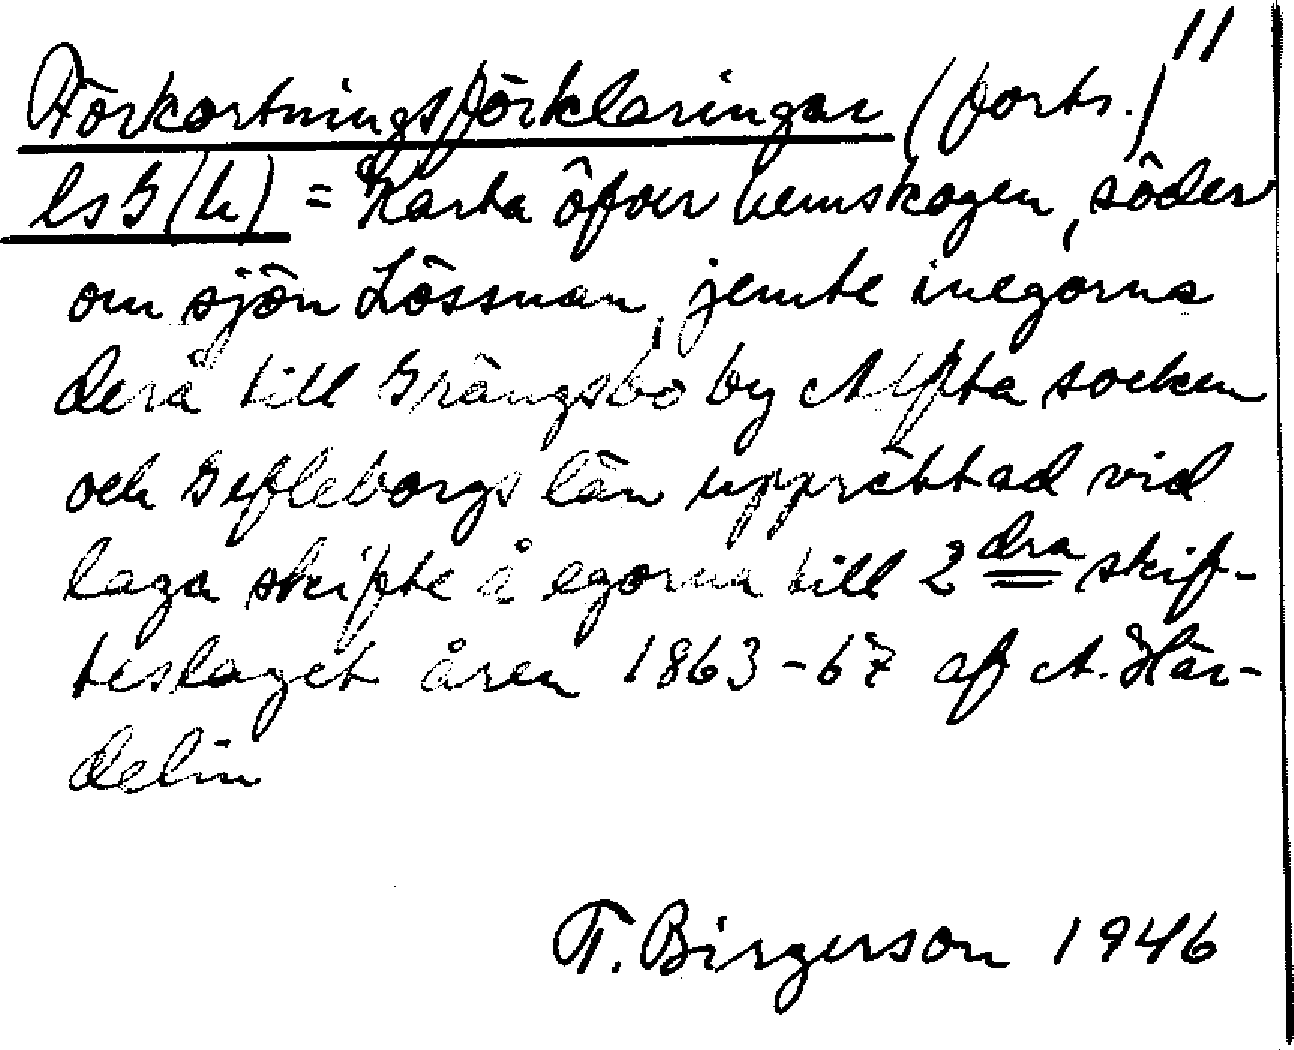 11
Förkortningsförklaringar (forts.)
ls G (h) = Karta öfver hemskogen, söder
om sjön Lössnan, jemte inegorna
derå till Grängsbo by Alfta socken
och Gefleborgs län upprättad vid
laga skifte å egorna till 2 dra skif-
teslaget åren 1863-67 af A. Hår-
delin
T. Birgerson 1946